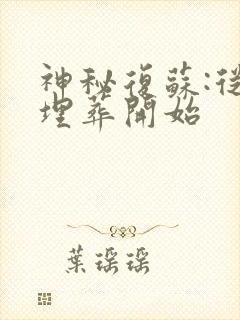 神秘復蘇:從
埋葬開始
葉瑤瑤